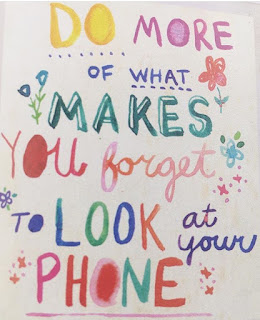 DO MORE
OF WHAT
MAKES
YOU forget
TO LOOK at your
PHONE